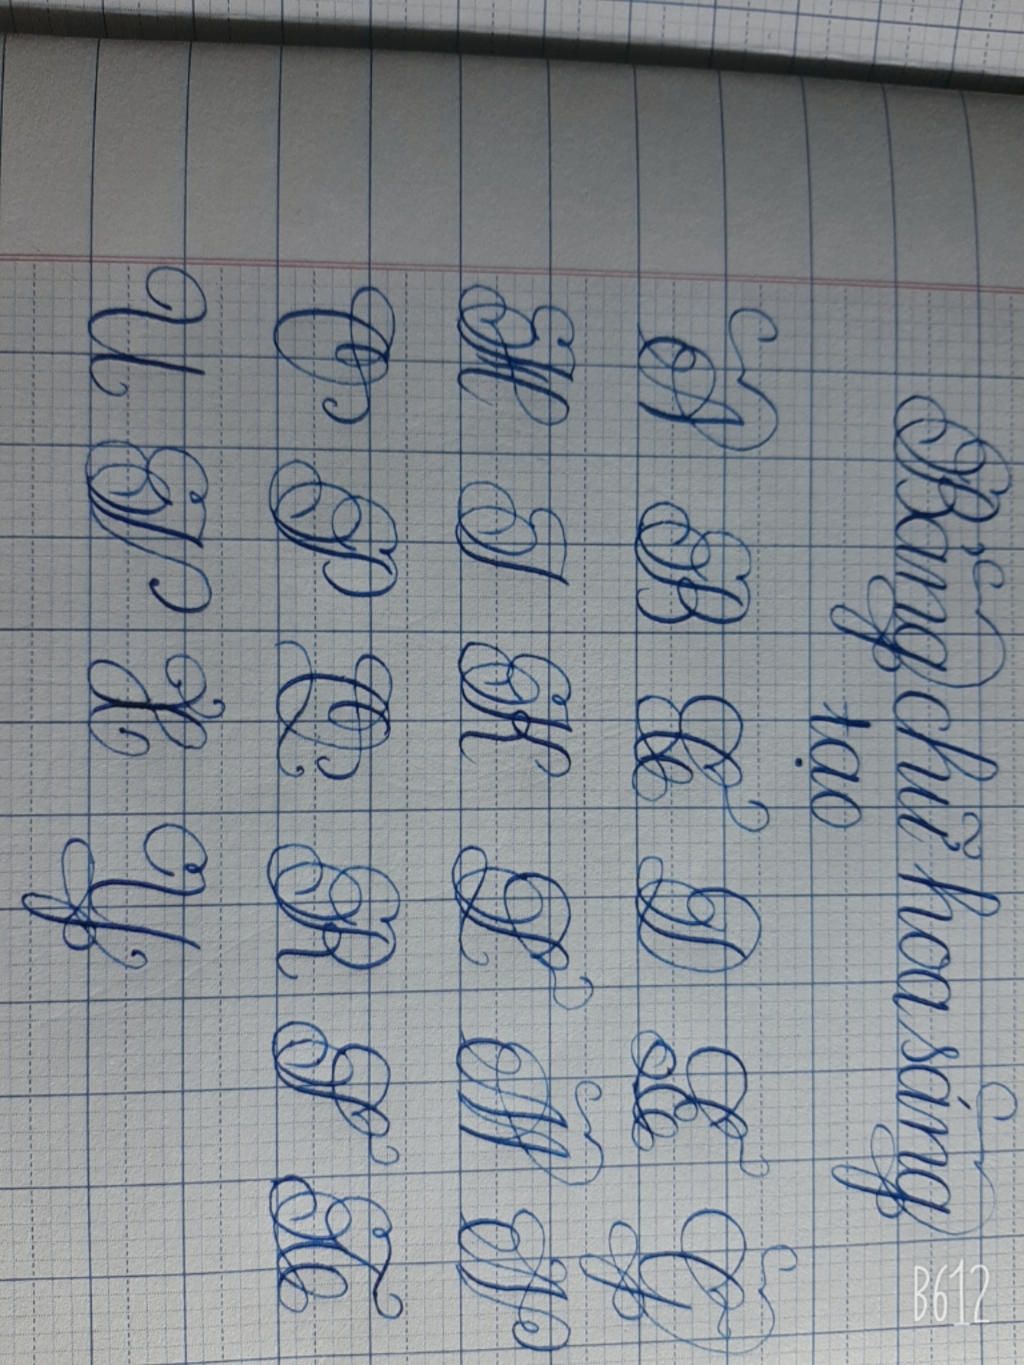 Bảng chữ hoa sáng
tạo
A B C D E G
H I K L M N
O P Q R S T
U V X Y
B612